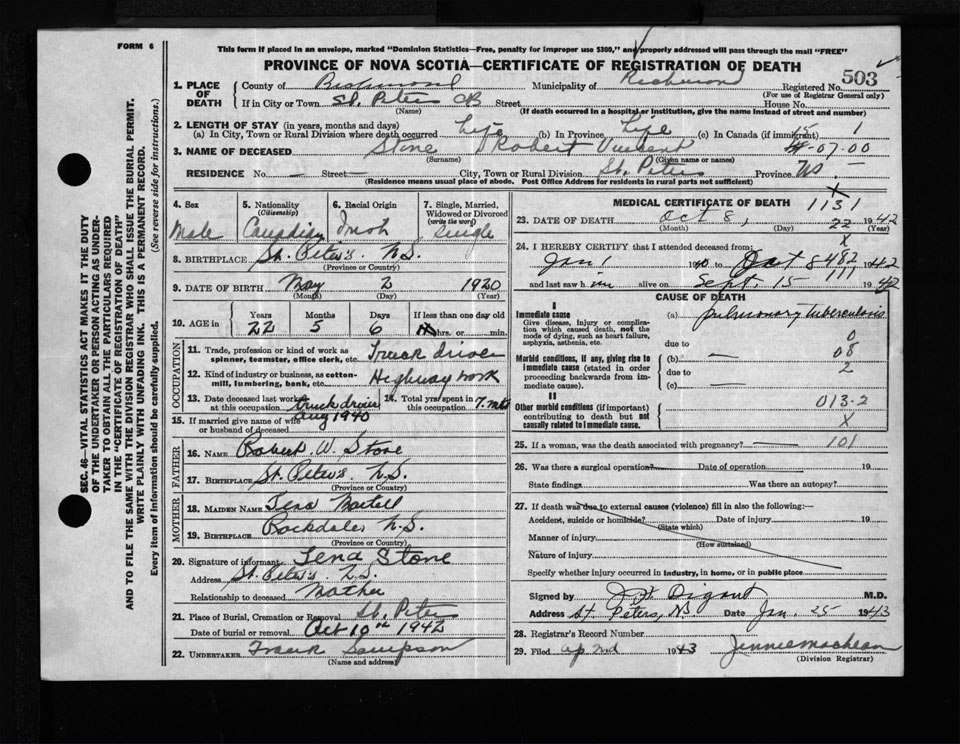 FORM 6
This form if placed in an envelope, marked "Dominion Statistics—Free, penalty for improper use $300," and properly addressed will pass through the mail "FREE"
PROVINCE OF NOVA SCOTIA—CERTIFICATE OF REGISTRATION OF DEATH
503
1. PLACE OF DEATH County of Richmond Municipality of Richmond Registered No.
(For use of Registrar General only)
If in City or Town St. Peters CB Street House No.
(Name) (If death occurred in a hospital or institution, give the name instead of street and number)
2. LENGTH OF STAY (in years, months and days)
(a) In City, Town or Rural Division where death occurred Life (b) In Province Life (c) In Canada (if immigrant) 15 1
3. NAME OF DECEASED Stone Robert Vincent -07-00
(Surname) (Given name or names)
RESIDENCE No. — Street — City, Town or Rural Division St. Peters Province NS. —
(Residence means usual place of abode. Post Office Address for residents in rural parts not sufficient)
SEC. 46—VITAL STATISTICS ACT MAKES IT THE DUTY
OF THE UNDERTAKER OR PERSON ACTING AS UNDER-
TAKER TO OBTAIN ALL THE PARTICULARS REQUIRED
IN THE "CERTIFICATE OF REGISTRATION OF DEATH"
AND TO FILE THE SAME WITH THE DIVISION REGISTRAR WHO SHALL ISSUE THE BURIAL PERMIT.
WRITE PLAINLY WITH UNFADING INK. THIS IS A PERMANENT RECORD.
Every item of information should be carefully supplied. (See reverse side for instructions).
4. Sex 5. Nationality (Citizenship) 6. Racial Origin 7. Single, Married, Widowed or Divorced (write the word)
Male Canadian Irish Single
8. BIRTHPLACE St. Peter's N.S.
(Province or Country)
9. DATE OF BIRTH May 2 1920
(Month) (Day) (Year)
10. AGE in Years Months Days If less than one day old
22 5 6 hrs. or min.
OCCUPATION
11. Trade, profession or kind of work as spinner, teamster, office clerk, etc. Truck driver
12. Kind of industry or business, as cotton-mill, lumbering, bank, etc. Highway work
13. Date deceased last worked at this occupation truck driver Aug 1940 14. Total yrs. spent in this occupation 7. mts
15. If married give name of wife or husband of deceased
FATHER
16. NAME Robert. W. Stone
17. BIRTHPLACE St. Peter's N.S.
(Province or Country)
MOTHER
18. MAIDEN NAME Tena Martell
19. BIRTHPLACE Rockdale N.S.
(Province or Country)
20. Signature of informant Tena Stone
Address St. Peter's N.S.
Relationship to deceased Mother
21. Place of Burial, Cremation or Removal St. Peters
Date of burial or removal Oct 10th 1942
22. UNDERTAKER Frank Sampson
(Name and address)
MEDICAL CERTIFICATE OF DEATH 1131
23. DATE OF DEATH Oct 8, 22 1942
(Month) (Day) (Year)
X
24. I HEREBY CERTIFY that I attended deceased from:
Jan 1 1940 to Oct 8 482 1942
and last saw him alive on Sept. 15 1111 1942
CAUSE OF DEATH
I
Immediate cause (a) Pulmonary Tuberculosis
Give disease, injury or complication which caused death, not the mode of dying, such as heart failure, asphyxia, asthenia, etc.
due to 0
Morbid conditions, if any, giving rise to immediate cause (stated in order proceeding backwards from immediate cause).
(b) — 08
due to 2
(c) —
II
Other morbid conditions (if important) contributing to death but not causally related to immediate cause. 013-2
X
25. If a woman, was the death associated with pregnancy? — 101
26. Was there a surgical operation? Date of operation 19
State findings Was there an autopsy?
27. If death was due to external causes (violence) fill in also the following:—
Accident, suicide or homicide? Date of injury 19
(State which)
Manner of injury
(How sustained)
Nature of injury
Specify whether injury occurred in industry, in home, or in public place
Signed by M.D.
Address St. Peters, NS Date Jan. 25 1943
28. Registrar's Record Number
29. Filed ap 2nd 1943 Jennie MacLean
(Division Registrar)